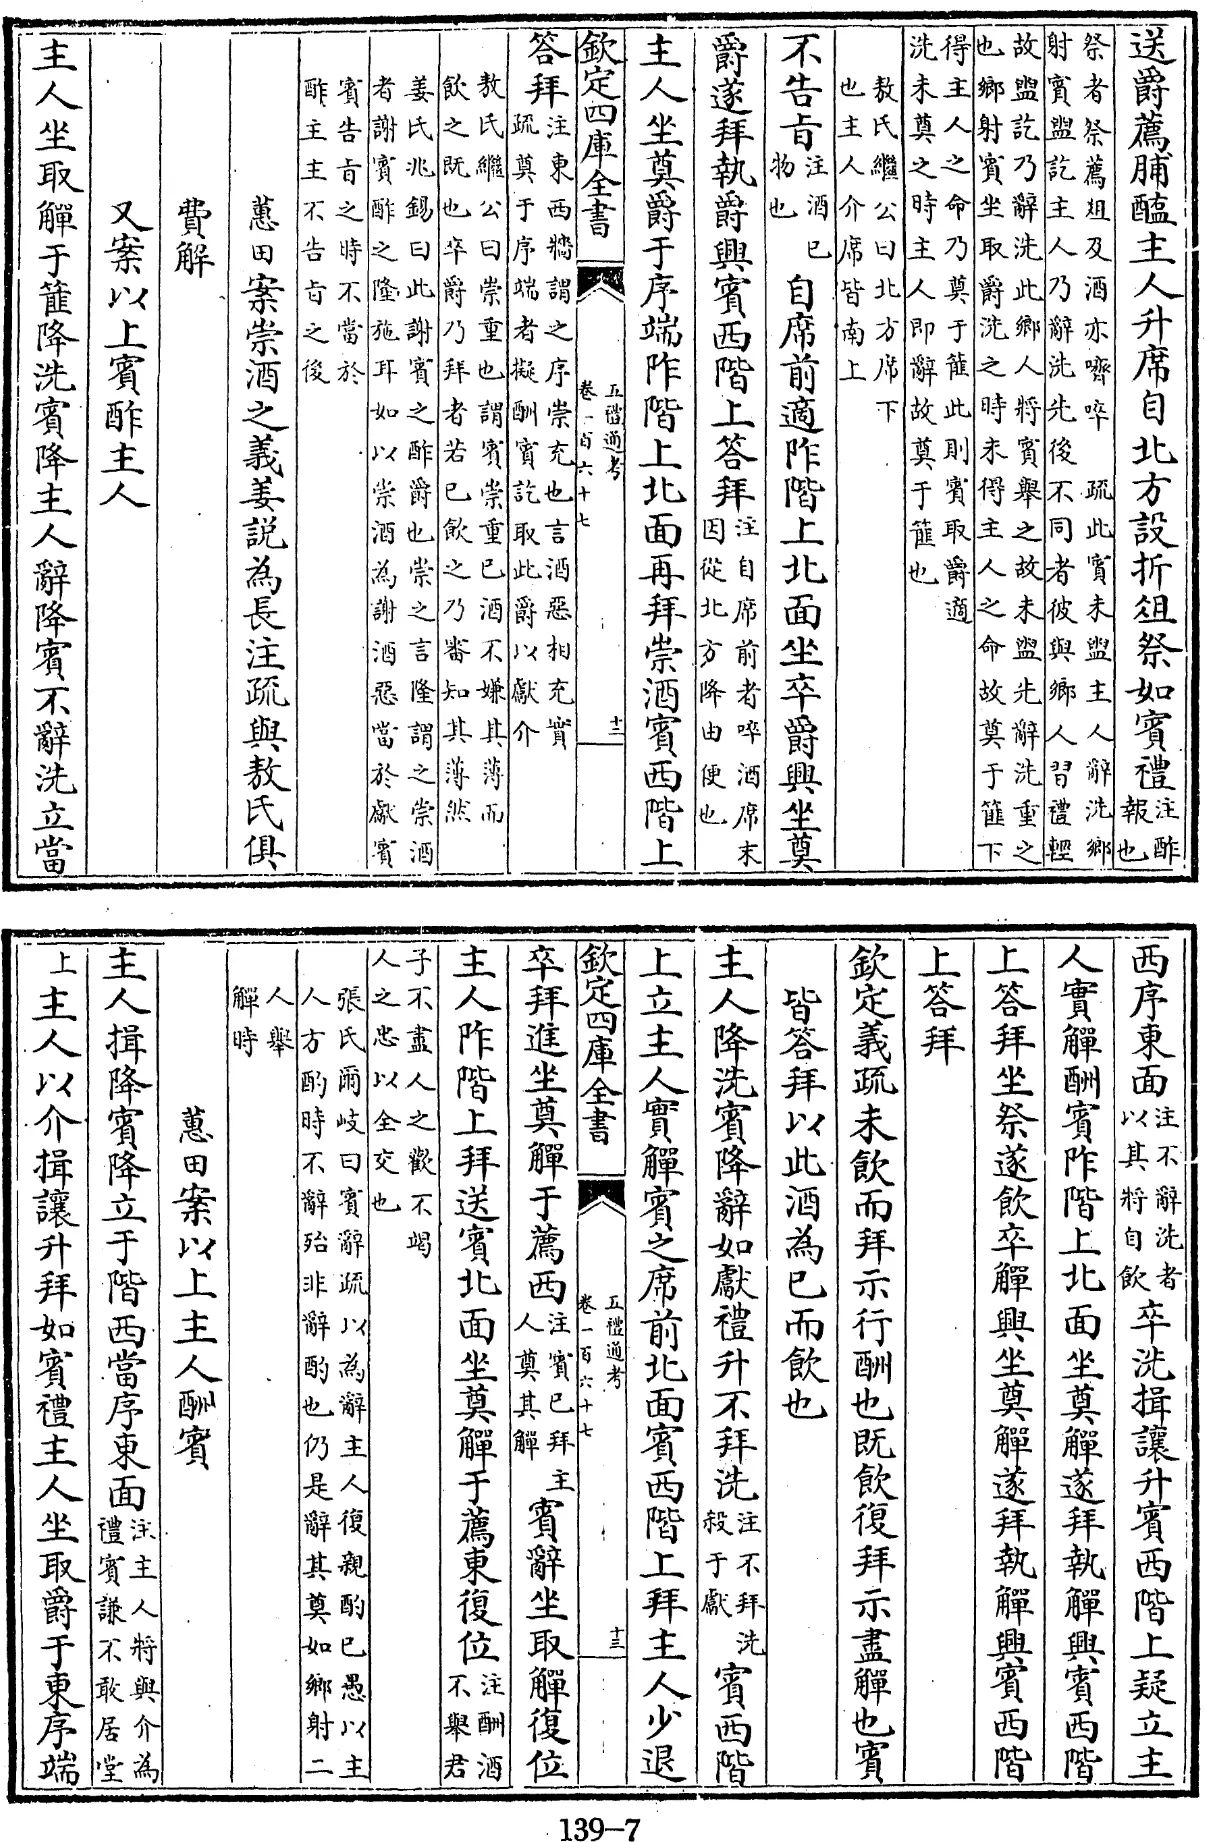 送爵薦脯醢主人升席自北方設折俎祭如賓禮注酢報也
祭者祭薦俎及酒亦嚌啐　疏此賓未盥主人辭洗鄉
射賓盥訖主人乃辭洗先後不同者彼與鄉人習禮輕
故盥訖乃辭洗此鄉人將賓舉之故未盥先辭洗重之
也鄉射賓坐取爵洗之時未得主人之命故奠于篚下
得主人之命乃奠于篚此則賓取爵適
洗未奠之時主人即辭故奠于篚也
敖氏繼公曰北方席下
也主人介席皆南上
不告旨注酒已物也自席前適阼階上北面坐卒爵興坐奠
爵遂拜執爵興賓西階上答拜注自席前者啐酒席末因從北方降由便也
主人坐奠爵于序端阼階上北面再拜崇酒賓西階上
欽定四庫全書　五禮通考卷一百六十七　十二
答拜注東西牆謂之序崇充也言酒惡相充實
疏奠于序端者擬酬賓訖取此爵以獻介
敖氏繼公曰崇重也謂賓崇重已酒不嫌其薄而
飲之既也卒爵乃拜者若已飲之乃審知其薄然
姜氏兆錫曰此謝賓之酢爵也崇之言隆謂之崇酒
者謝賓酢之隆施耳如以崇酒為謝酒惡當於獻賓
賓告旨之時不當於
酢主主不告旨之後
蕙田案崇酒之義姜説為長注疏與敖氏俱
費解
又案以上賓酢主人
主人坐取觶于篚降洗賓降主人辭降賓不辭洗立當
西序東面注不辭洗者以其將自飲卒洗揖讓升賓西階上疑立主
人實觶酬賓阼階上北面坐奠觶遂拜執觶興賓西階
上答拜坐祭遂飲卒觶興坐奠觶遂拜執觶興賓西階
上答拜
欽定義疏未飲而拜示行酬也既飲復拜示盡觶也賓
皆答拜以此酒為已而飲也
主人降洗賓降辭如獻禮升不拜洗注不拜洗殺于獻賓西階
上立主人實觶賓之席前北面賓西階上拜主人少退
欽定四庫全書　五禮通考卷一百六十七　十三
卒拜進坐奠觶于薦西注賓已拜主人奠其觶賓辭坐取觶復位
主人阼階上拜送賓北面坐奠觶于薦東復位注酬酒不舉君
子不盡人之歡不竭
人之忠以全交也
張氏爾岐曰賓辭疏以為辭主人復親酌已愚以主
人方酌時不辭殆非辭酌也仍是辭其奠如鄉射二
人舉
觶時
蕙田案以上主人酬賓
主人揖降賓降立于階西當序東面注主人將與介為禮賓謙不敢居堂
上主人以介揖讓升拜如賓禮主人坐取爵于東序端
139-7